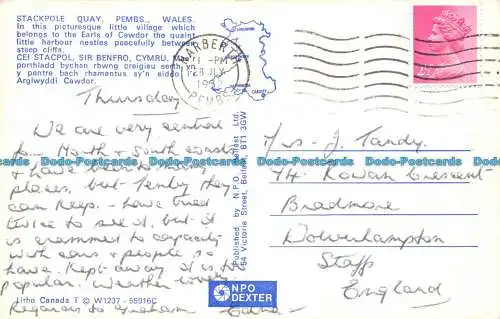 STACKPOLE QUAY, PEMBS., WALES.
In this picturesque little village which
belongs to the Earls of Cawdor the quaint
little harbour nestles peacefully between
steep cliffs.
CEI STACPOL, SIR BENFRO, CYMRU.
porthladd bychan rhwng creigiau serth yn
y pentre bach rhamantus sy'n eiddo i
Arglwyddi Cawdor.
NARBERTH
PM
28 JLY
1982
PEMBS
Thursday
We are very central
for North & South coasts
& have been to many
places, but Tenby they
can keep. - have tried
twice to see it, but it
is crammed to capacity
with cars & people so
have Kept away it is too
popular. Weather lovely.
Regards to Graham
Litho Canada T © W1237 - 55916C
Published by N.P.O. Belfast Ltd.
54 Victoria Street, Belfast, BT1 3GW
NPO
DEXTER
Mrs J. Tandy.
74 Rowan Crescent
Bradmore
Wolverhampton
Staffs
England
www.ansichtskartenwelt.de
www.ansichtskartenwelt.de
www.ansichtskartenwelt.de